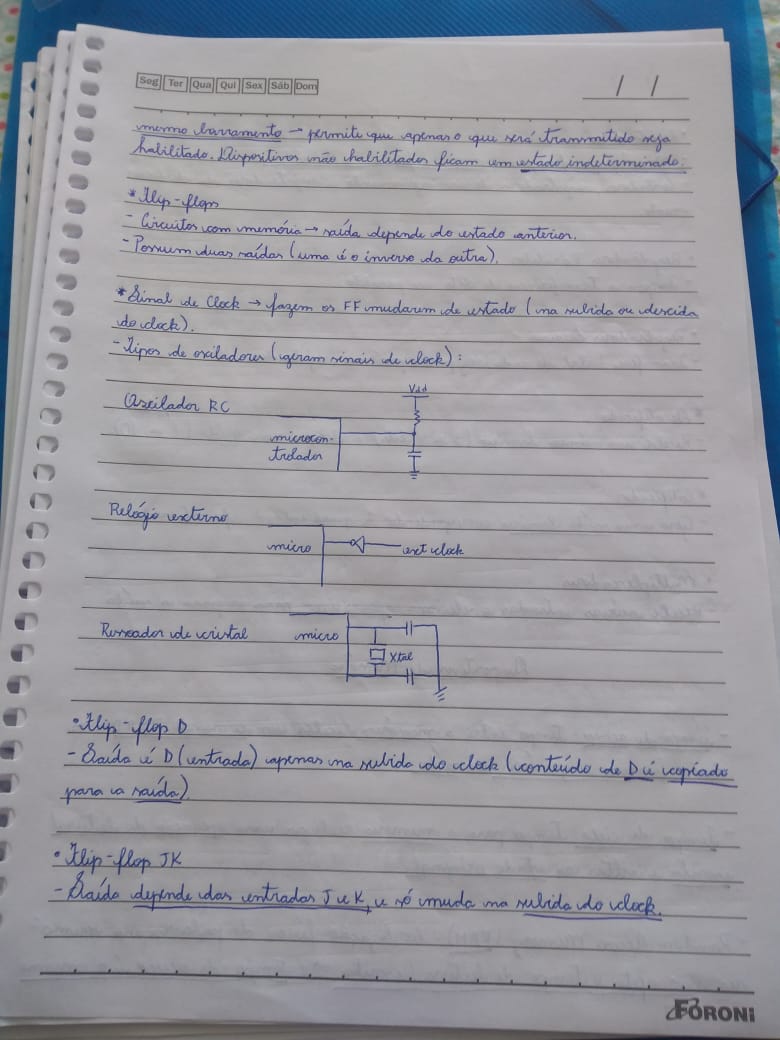 Seg Ter Qua Qui Sex Sáb Dom
/ /
mesmo barramento → permite que apenas o que será transmitido seja
habilitado. Dispositivos não habilitados ficam em estado indeterminado.
* Flip-flops
- Circuitos com memória → saída depende do estado anterior.
- Possuem duas saídas (uma é o inverso da outra).
* Sinal de Clock → fazem os FF mudarem de estado (na subida ou descida
do clock).
- Tipos de osciladores (geram sinais de clock):
Vdd
Oscilador RC
microcon-
trolador
Relógio externo
micro
ext clock
Ressoador de cristal
micro
Xtal
• Flip-flop D
- Saída é D (entrada) apenas na subida do clock (conteúdo de D é copiado
para a saída).
• Flip-flop JK
- Saída depende das entradas J e K, e só muda na subida do clock.
FORONI